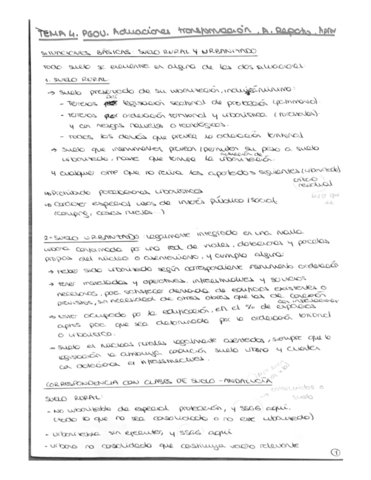 TEMA 4. PGOU. Actuaciones transformación. A. Reparto. Apro
SITUACIONES BÁSICAS SUELO RURAL Y URBANIZADO
Todo suelo se encuentra en alguna de las dos situaciones
1. SUELO RURAL
→ Suelo preservado de su urbanización, incluyéndose mínimo:
- Terrenos por legislación sectorial de protección (patrimonio)
- Terrenos por ordenación territorial y urbanística (
y con riesgos naturales o tecnológicos.
- Todos los demás que prevea la ordenación territorial
→ Suelo que instrumentos prevean/permitan su paso a suelo
urbanizado, hasta que termine la urbanización
y cualquier otro que no reúna los apartados siguientes (urbanizado)
criterio
residual
→ Prohibido parcelaciones urbanísticas
→ Carácter especial usos de interés público/social
(camping, casas rurales...)
2- SUELO URBANIZADO legalmente integrado en una malla
urbana conformada por una red de viales, dotaciones y parcelas
propia del núcleo o asentamiento, y cumpla alguna:
→ haber sido urbanizado según correspondiente instrumento ordenación
→ tener instaladas y operativas, infraestructuras y servicios
necesarios, para satisfacer demanda de edificios existentes o
previstas, sin necesidad de otras obras que las de conexión
con instalaciones
→ estar ocupado por la edificación, en el % de espacios
aptos para que sea determinado por la ordenación territorial
o urbanística.
→ Suelo es núcleos rurales legalmente asentados, siempre que la
legislación le atribuya condición suelo urbano y cuenten
con dotaciones e infraestructuras
CORRESPONDENCIA CON CLASES DE SUELO - ANDALUCÍA
SUELO RURAL:
- No urbanizable de especial protección, y SSGG aquí.
(todo lo que no sea consolidado o no esté urbanizado)
- Urbanizable sin ejecutar, y SSGG aquí
- Urbano no consolidado que constituya vacío relevante
1